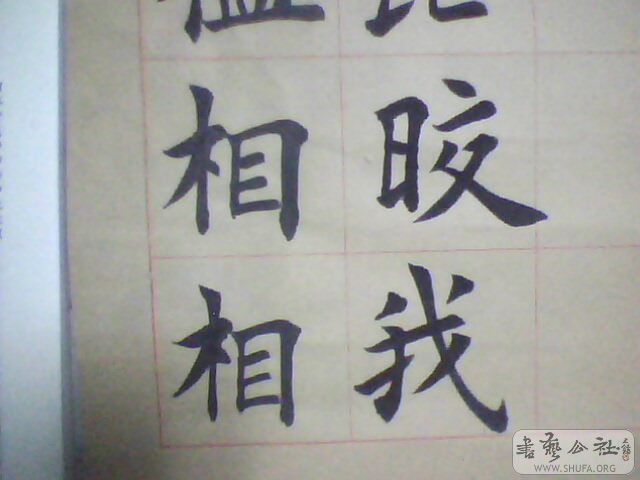 晈我
相相
書藝公社
WWW.SHUFA.ORG